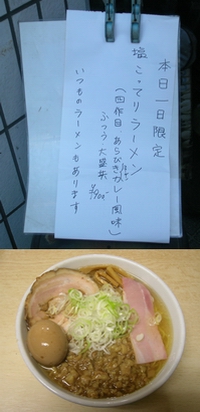 本日一日限定
塩こってりラーメン
(四作目 あらびきカレー風味)
ふつう 大盛共
いつものラーメンもあります